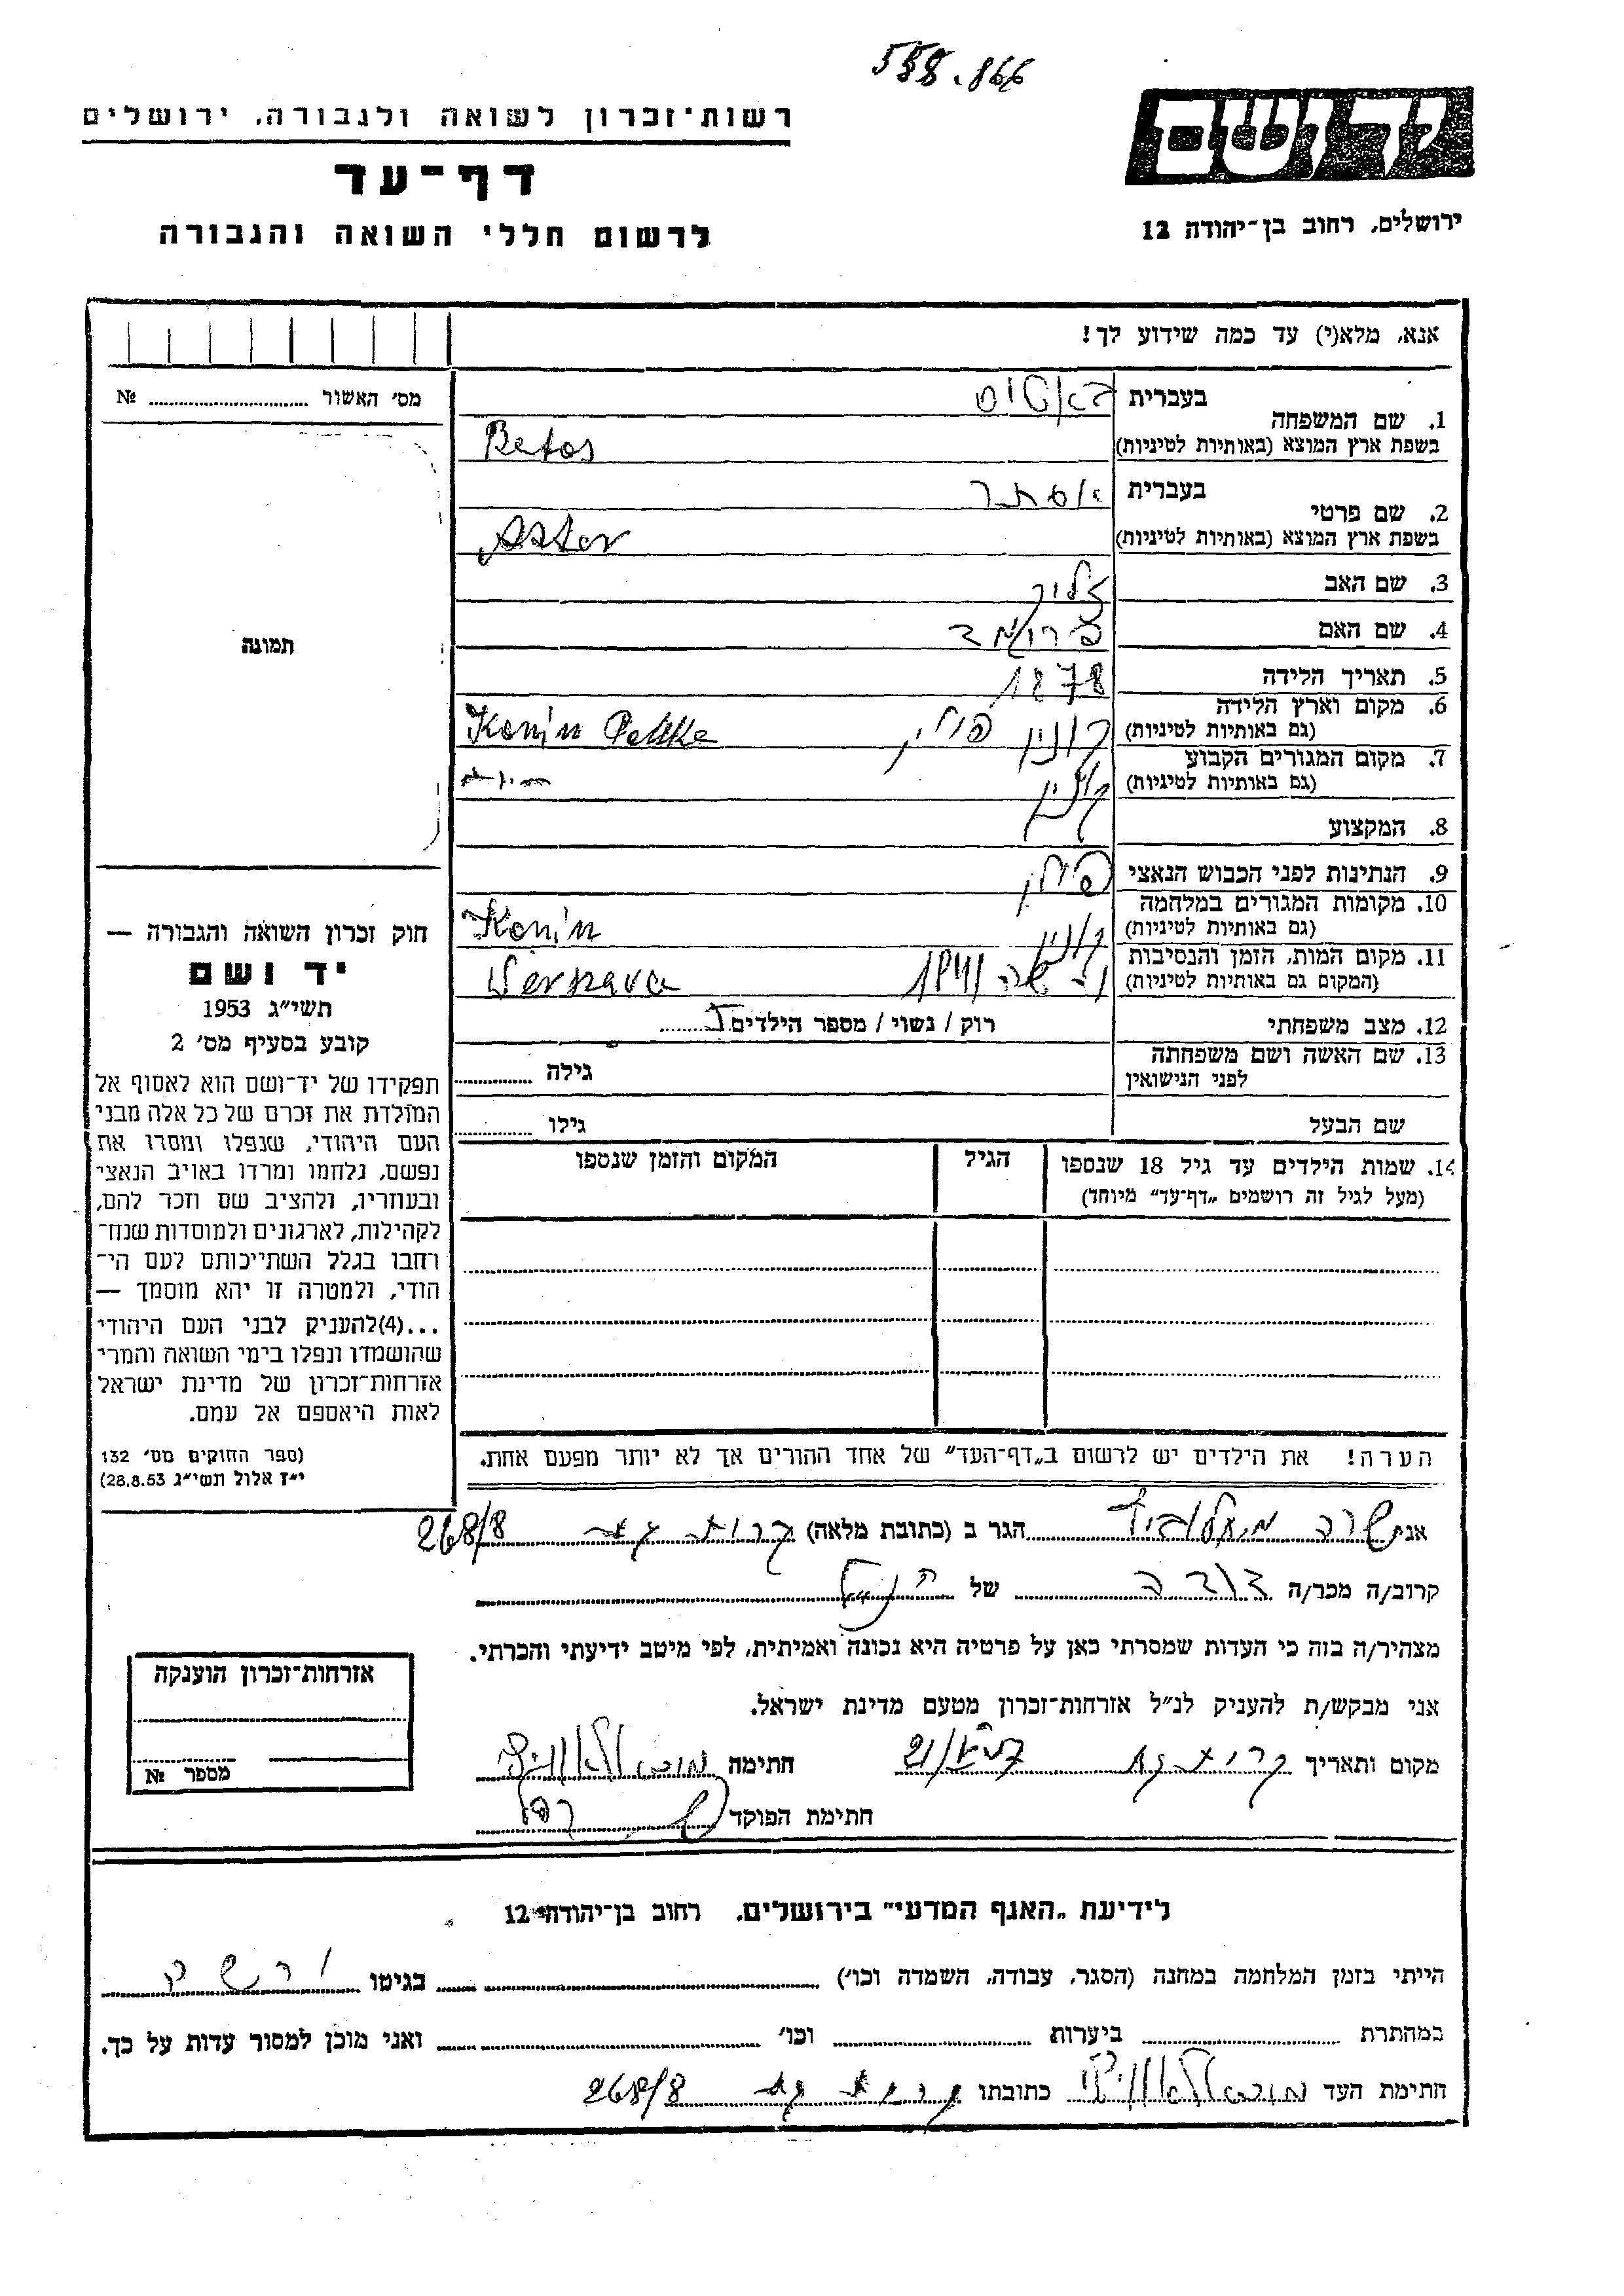 588.866
רשות־זכרון לשואה ולגבורה, ירושלים
דף־עד
לרשום חללי השואה והגבורה
יד ושם
ירושלים, רחוב בן־יהודה 12
אנא, מלא(י) עד כמה שידוע לך!
מס׳ האשור № ........
תמונה
חוק זכרון השואה והגבורה —
יד ושם
תשי״ג 1953
קובע בסעיף מס׳ 2
תפקידו של יד־ושם הוא לאסוף אל
המולדת את זכרם של כל אלה מבני
העם היהודי, שנפלו ומסרו את
נפשם, נלחמו ומרדו באויב הנאצי
ובעוזריו, ולהציב שם וזכר להם,
לקהילות, לארגונים ולמוסדות שנח־
רחבו בגלל השתייכותם לעם הי־
הודי, ולמטרה זו יהא מוסמך —
...(4)להעניק לבני העם היהודי
שהושמדו ונפלו בימי השואה והמרי
אזרחות־זכרון של מדינת ישראל
לאות היאספם אל עמם.
(ספר החוקים מס׳ 132
י״ז אלול תשי״ג 28.8.53)
1. שם המשפחה בעברית באטוס
בשפת ארץ המוצא (באותיות לטיניות) Betos
2. שם פרטי בעברית אסתר
בשפת ארץ המוצא (באותיות לטיניות) Aster
3. שם האב
4. שם האם
5. תאריך הלידה 1878
6. מקום וארץ הלידה (גם באותיות לטיניות) קונין פולין Konin Polske
7. מקום המגורים הקבוע (גם באותיות לטיניות) קונין
8. המקצוע
9. הנתינות לפני הכבוש הנאצי פולין
10. מקומות המגורים במלחמה (גם באותיות לטיניות) קונין Konin
11. מקום המות, הזמן והנסיבות (המקום גם באותיות לטיניות) 1941 Verszava
12. מצב משפחתי רוק / נשוי / מספר הילדים
13. שם האשה ושם משפחתה לפני הנישואין גילה
שם הבעל גילו
14. שמות הילדים עד גיל 18 שנספו הגיל המקום והזמן שנספו
(מעל לגיל זה רושמים „דף־עד״ מיוחד)
הערה! את הילדים יש לרשום ב„דף־העד״ של אחד ההורים אך לא יותר מפעם אחת.
אני שרה הגר ב (כתובת מלאה) קרית גת 268/8
קרוב/ה מכר/ה של
מצהיר/ה בזה כי העדות שמסרתי כאן על פרטיה היא נכונה ואמיתית, לפי מיטב ידיעתי והכרתי.
אני מבקש/ת להעניק לנ״ל אזרחות־זכרון מטעם מדינת ישראל.
מקום ותאריך קרית גת חתימה
חתימת הפוקד
אזרחות־זכרון הוענקה
מספר №
לידיעת „האגף המדעי״ בירושלים, רחוב בן־יהודה 12
הייתי בזמן המלחמה במחנה (הסגר, עבודה, השמדה וכו׳) בגיטו
במחתרת ביערות וכו׳ ואני מוכן למסור עדות על כך.
חתימת העד כתובתו קרית גת 268/8